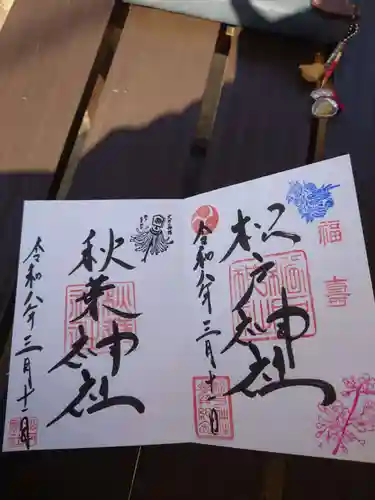 福寿
松戸神社
令和八年三月十一日
秋葉神社
令和八年三月十一日